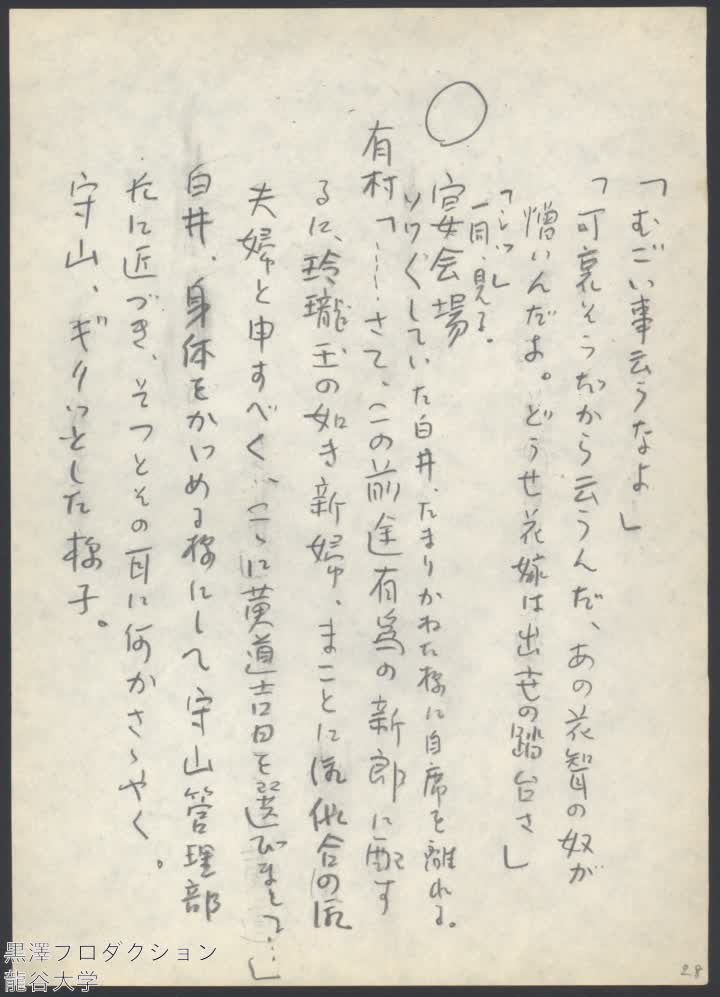 「むごい事云うなよ」
「可哀そうだから云うんだ、あの花智の奴が
憎いんだよ。どうせ花嫁は出世の踏台さ」
「シッ」
一同、見る。
○
宴会場
ソワソワしていた白井、たまりかねた様に自席を離れる。
有村「……さて、この前途有為の新郎に配す
るに、玲瓏玉の如き新婦、まことに似合の
夫婦と申すべく、こゝに黄道吉日を選びまして…」
白井、身体をかゞめる様にして守山管理部
長に近づき、そっとその耳に何かさゝやく。
守山、ギクッとした様子。
28
黒澤プロダクション
龍谷大学